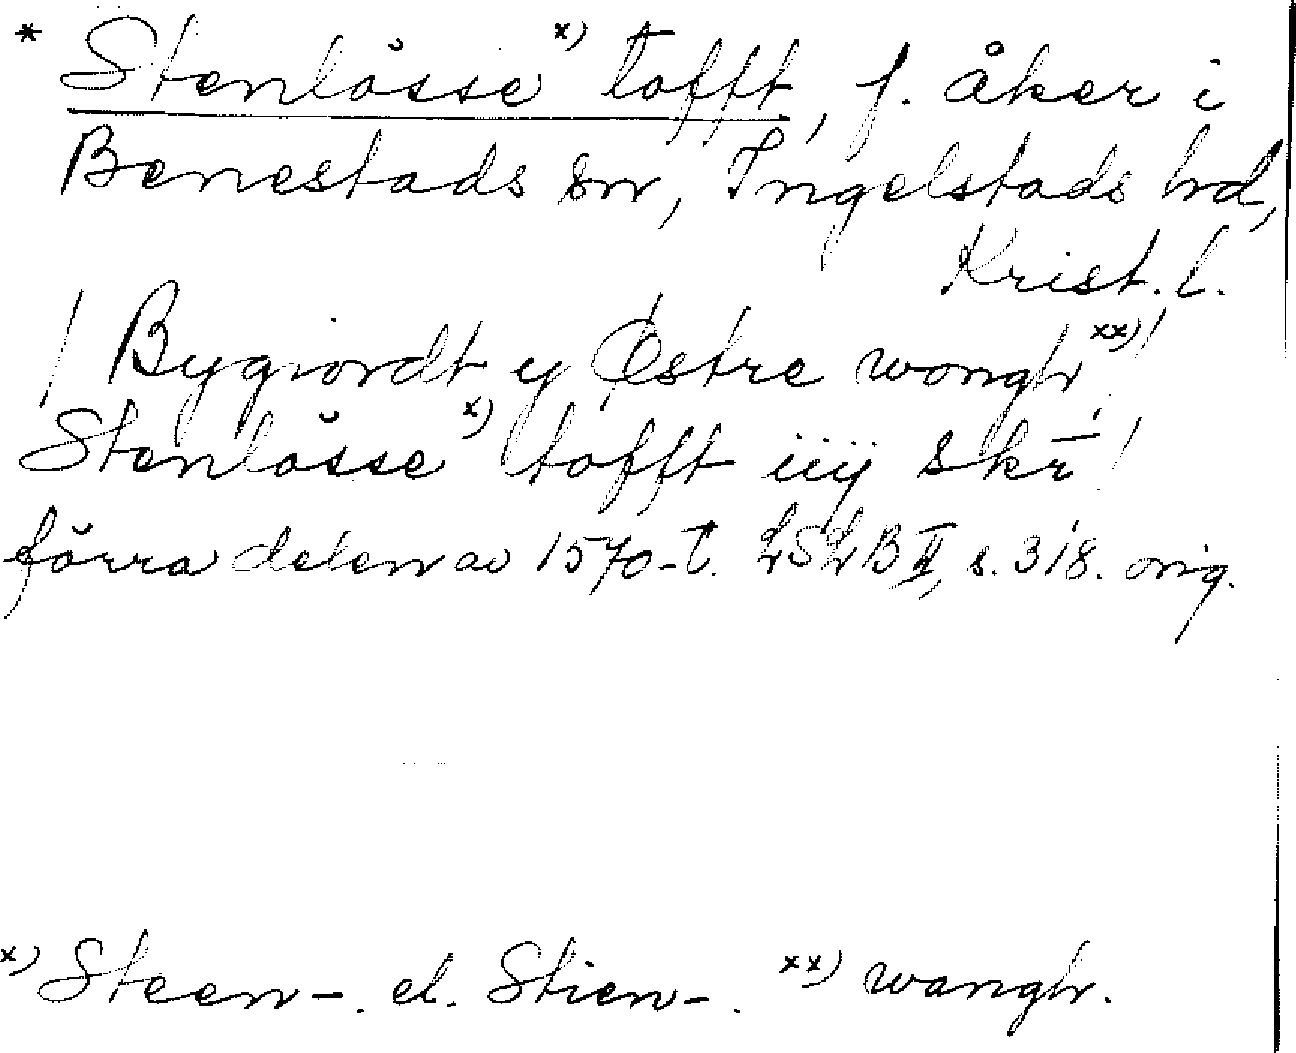 * Stenlösse x) tofft, f. åker i
Benestads sn, Ingelstads hd,
Krist. l.
/ Bygiordt y Østre wongh xx) /
Stenlösse x) tofft iiij skr̄ /
förra delen av 1570-t. LSLB II, s. 318. orig.
x) Steen-. el. Stien-. xx) wangh.